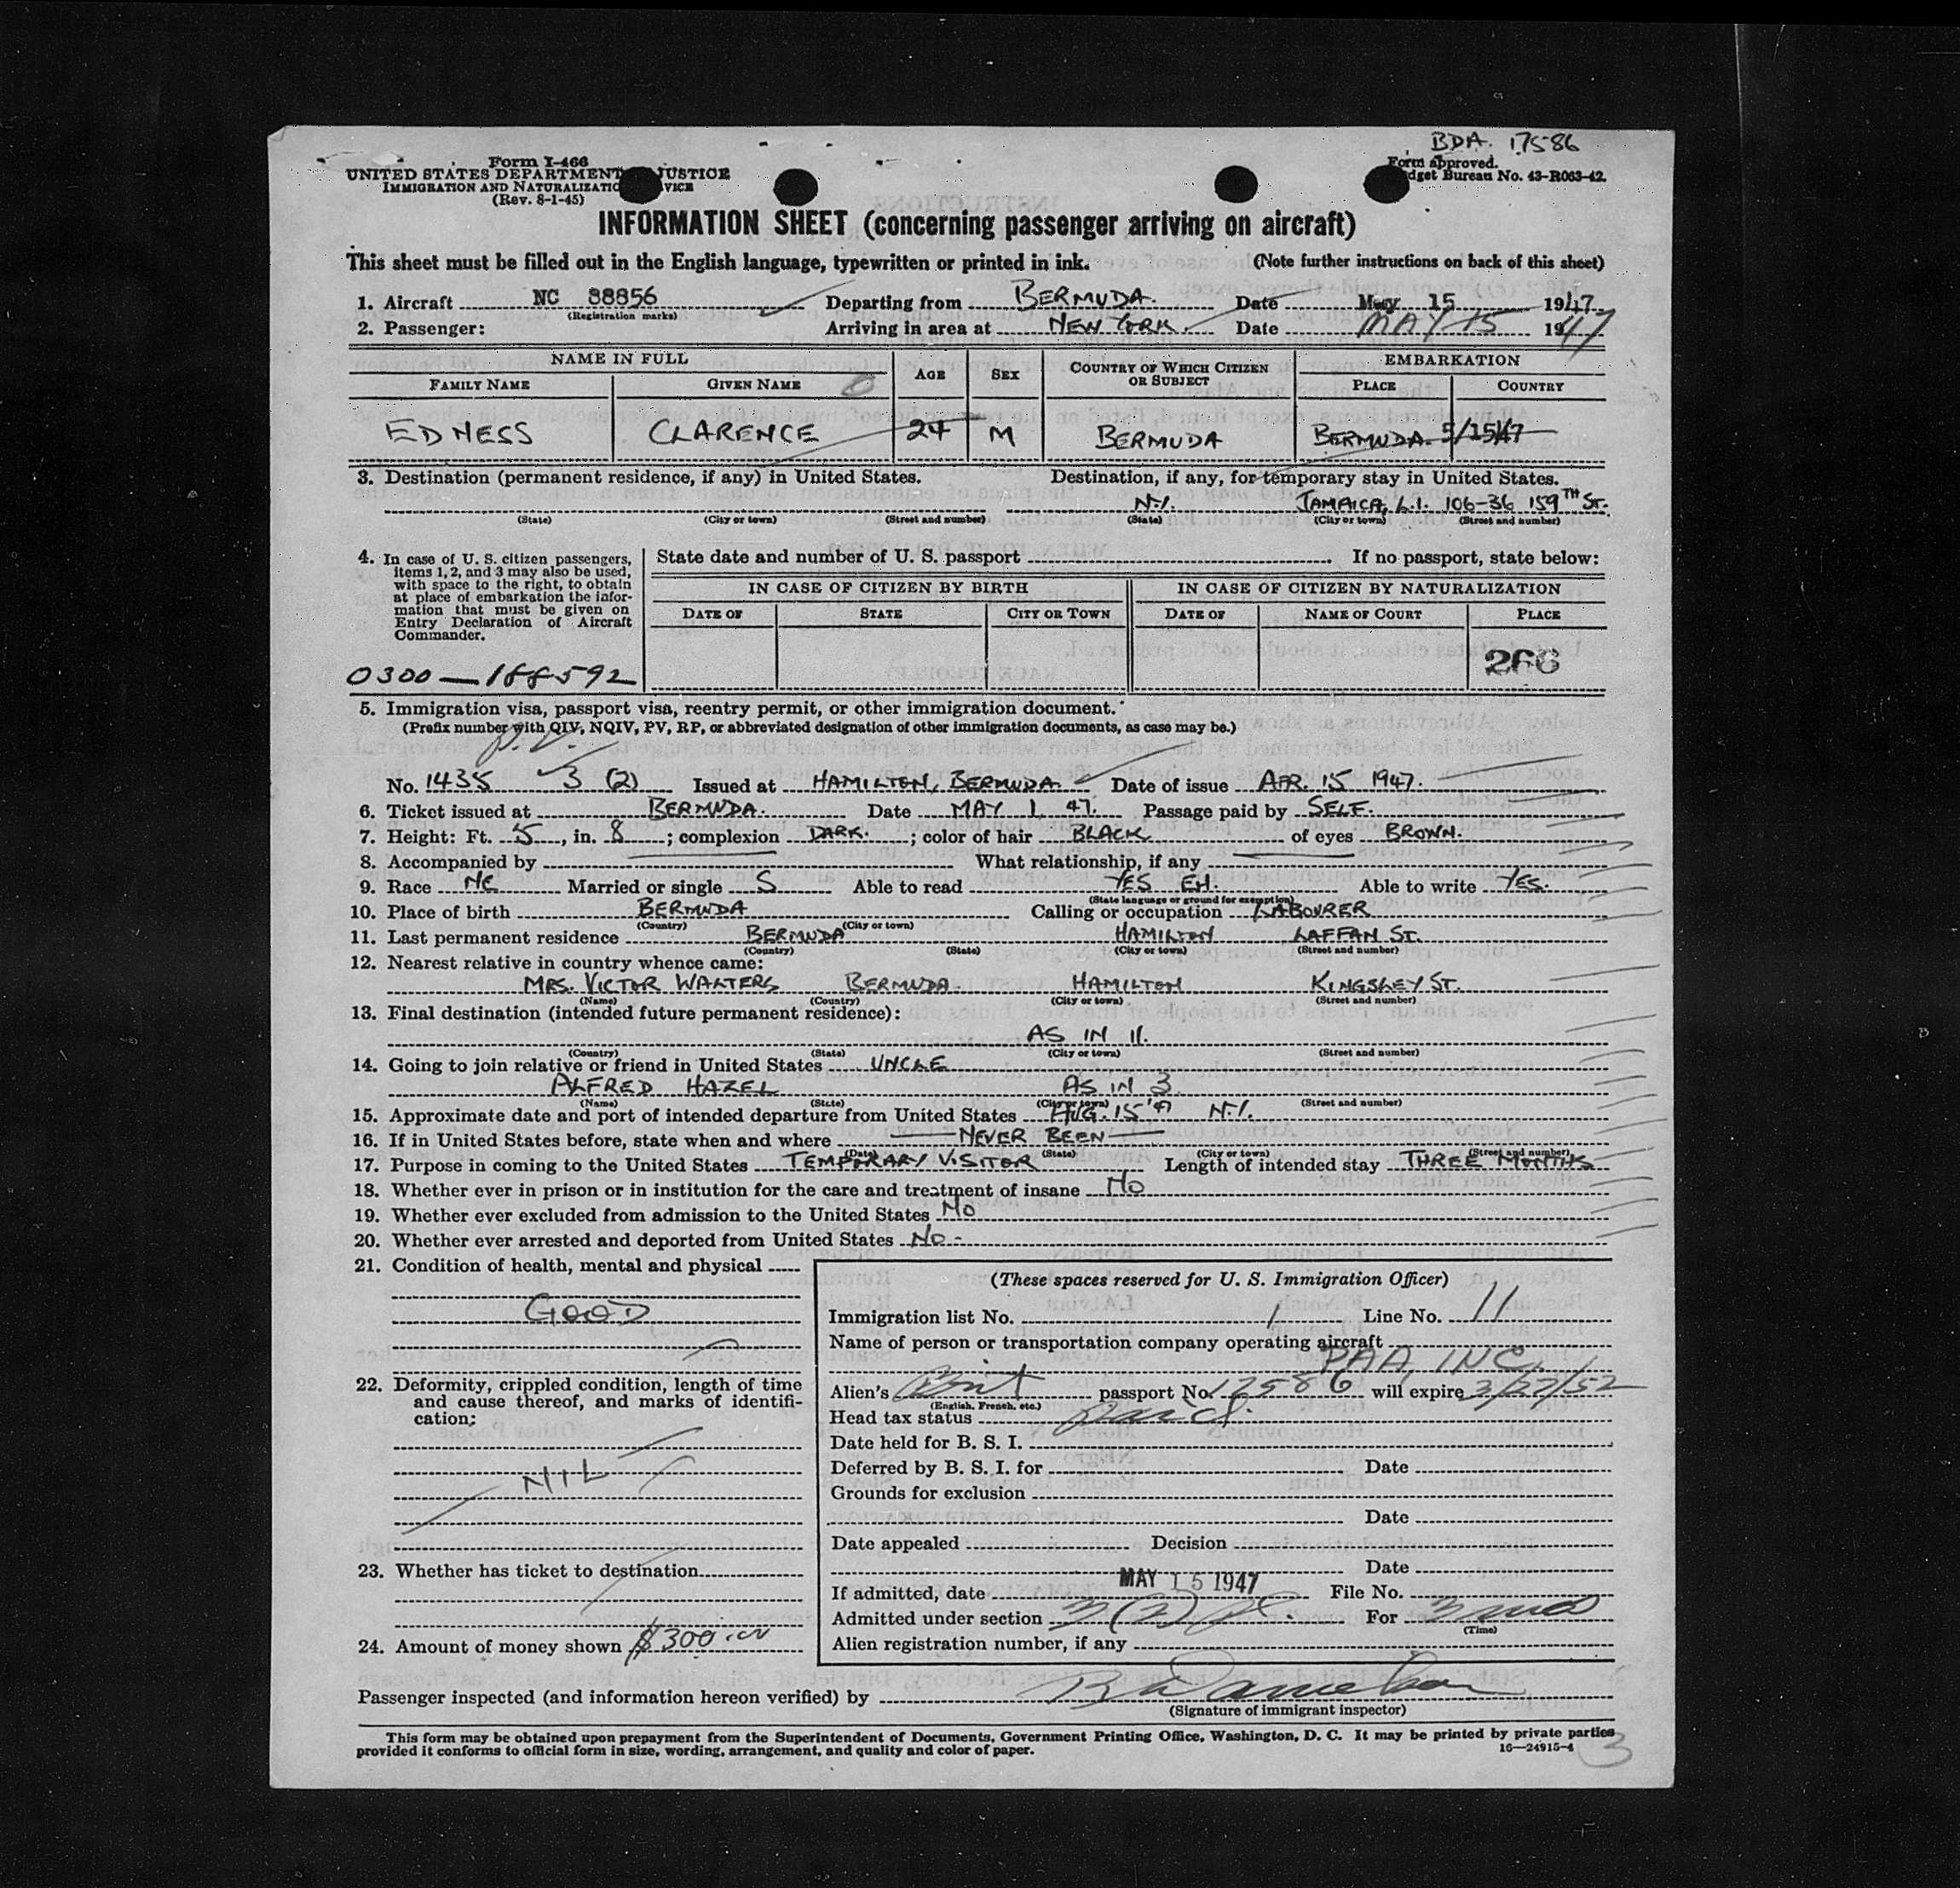 BDA. 17586
Form I-466
UNITED STATES DEPARTMENT JUSTICE
IMMIGRATION AND NATURALIZATIO VICE
(Rev. 8-1-45)
Form approved.
dget Bureau No. 43-R063-42.
INFORMATION SHEET (concerning passenger arriving on aircraft)
This sheet must be filled out in the English language, typewritten or printed in ink. (Note further instructions on back of this sheet)
1. Aircraft NC 88856 Departing from BERMUDA. Date May 15 1947
(Registration marks)
2. Passenger: Arriving in area at NEW YORK. Date MAY 15 1947
NAME IN FULL AGE SEX COUNTRY OF WHICH CITIZEN OR SUBJECT EMBARKATION
FAMILY NAME GIVEN NAME PLACE COUNTRY
EDNESS CLARENCE 24 M BERMUDA BERMUDA. 5/15/47
3. Destination (permanent residence, if any) in United States. Destination, if any, for temporary stay in United States.
N.Y. JAMAICA, L.I. 106-36 159TH ST.
(State) (City or town) (Street and number) (State) (City or town) (Street and number)
4. In case of U. S. citizen passengers, items 1, 2, and 3 may also be used, with space to the right, to obtain at place of embarkation the information that must be given on Entry Declaration of Aircraft Commander.
State date and number of U. S. passport If no passport, state below:
IN CASE OF CITIZEN BY BIRTH IN CASE OF CITIZEN BY NATURALIZATION
DATE OF STATE CITY OR TOWN DATE OF NAME OF COURT PLACE
266
0300-188592
5. Immigration visa, passport visa, reentry permit, or other immigration document.
(Prefix number with QIV, NQIV, PV, RP, or abbreviated designation of other immigration documents, as case may be.)
P.V.
No. 1435 3 (2) Issued at HAMILTON, BERMUDA. Date of issue APR. 15 1947.
6. Ticket issued at BERMUDA. Date MAY 1, 47. Passage paid by SELF.
7. Height: Ft. 5, in. 8; complexion DARK.; color of hair BLACK of eyes BROWN.
8. Accompanied by What relationship, if any
9. Race NE Married or single S Able to read YES EH. Able to write YES.
(State language or ground for exemption)
10. Place of birth BERMUDA Calling or occupation LABOURER
(Country) (City or town)
11. Last permanent residence BERMUDA HAMILTON LAFFAN ST.
(Country) (State) (City or town) (Street and number)
12. Nearest relative in country whence came:
MRS. VICTOR WALTERS BERMUDA. HAMILTON KINGSLEY ST.
(Name) (Country) (City or town) (Street and number)
13. Final destination (intended future permanent residence):
AS IN 11.
(Country) (State) (City or town) (Street and number)
14. Going to join relative or friend in United States UNCLE
ALFRED HAZEL AS IN 3.
(Name) (State) (City or town) (Street and number)
15. Approximate date and port of intended departure from United States AUG. 15 '47 N.Y.
16. If in United States before, state when and where NEVER BEEN
(Date) (State) (City or town) (Street and number)
17. Purpose in coming to the United States TEMPORARY VISITOR Length of intended stay THREE MONTHS
18. Whether ever in prison or in institution for the care and treatment of insane NO
19. Whether ever excluded from admission to the United States NO
20. Whether ever arrested and deported from United States NO-
21. Condition of health, mental and physical
GOOD
22. Deformity, crippled condition, length of time and cause thereof, and marks of identification:
NIL
23. Whether has ticket to destination
24. Amount of money shown $300.00
(These spaces reserved for U. S. Immigration Officer)
Immigration list No. 1 Line No. 11
Name of person or transportation company operating aircraft
PAA, INC.
Alien's Brit passport No. 17586 will expire 3/27/52
(English, French, etc.)
Head tax status paid.
Date held for B. S. I.
Deferred by B. S. I. for Date
Grounds for exclusion
Date
Date appealed Decision
Date
If admitted, date MAY 15 1947 File No.
Admitted under section 3(2) For 3 mos
(Time)
Alien registration number, if any
Passenger inspected (and information hereon verified) by
(Signature of immigrant inspector)
This form may be obtained upon prepayment from the Superintendent of Documents, Government Printing Office, Washington, D. C. It may be printed by private parties
provided it conforms to official form in size, wording, arrangement, and quality and color of paper. 16—24915-4
3